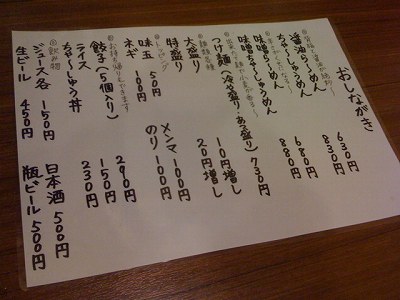 おしながき
醤油らーめん 630円
ちゃーしゅうめん 830円
味噌らーめん 680円
味噌ちゃーしゅうめん 880円
つけ麺(冷や盛り・あつ盛り) 730円
大盛り 10円増し
特盛り 20円増し
味玉 50円 メンマ 100円
ネギ 100円 のり 100円
餃子(5個入り) 290円
ライス 150円
ちゃーしゅう丼 230円
ジュース各 150円 日本酒 500円
生ビール 450円 瓶ビール 500円